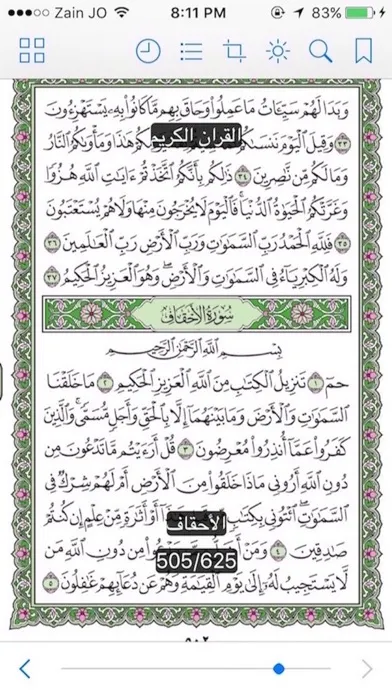 Zain JO 8:11 PM 83%
وَبَدَا لَهُمْ سَيِّئَاتُ مَا عَمِلُوا۟ وَحَاقَ بِهِم مَّا كَانُوا۟ بِهِۦ يَسْتَهْزِءُونَ
القرآن الكريم
٣٣ وَقِيلَ ٱلْيَوْمَ نَنسَىٰكُمْ هَٰذَا وَمَأْوَىٰكُمُ ٱلنَّارُ
وَمَا لَكُم مِّن نَّٰصِرِينَ ٣٤ ذَٰلِكُم بِأَنَّكُمُ ٱتَّخَذْتُمْ ءَايَٰتِ ٱللَّهِ هُزُوًا
وَغَرَّتْكُمُ ٱلْحَيَوٰةُ ٱلدُّنْيَا فَٱلْيَوْمَ لَا يُخْرَجُونَ مِنْهَا وَلَا هُمْ يُسْتَعْتَبُونَ
٣٥ فَلِلَّهِ ٱلْحَمْدُ رَبِّ ٱلسَّمَٰوَٰتِ وَرَبِّ ٱلْأَرْضِ رَبِّ ٱلْعَٰلَمِينَ ٣٦
وَلَهُ ٱلْكِبْرِيَآءُ فِى ٱلسَّمَٰوَٰتِ وَٱلْأَرْضِ وَهُوَ ٱلْعَزِيزُ ٱلْحَكِيمُ ٣٧
سُورَةُ الأَحْقَافِ
بِسْمِ ٱللَّهِ ٱلرَّحْمَٰنِ ٱلرَّحِيمِ
حمٓ ١ تَنزِيلُ ٱلْكِتَٰبِ مِنَ ٱللَّهِ ٱلْعَزِيزِ ٱلْحَكِيمِ ٢ مَا خَلَقْنَا
ٱلسَّمَٰوَٰتِ وَٱلْأَرْضَ وَمَا بَيْنَهُمَآ إِلَّا بِٱلْحَقِّ وَأَجَلٍ مُّسَمًّى وَٱلَّذِينَ
كَفَرُوا۟ عَمَّآ أُنذِرُوا۟ مُعْرِضُونَ ٣ قُلْ أَرَءَيْتُم مَّا تَدْعُونَ مِن
دُونِ ٱللَّهِ أَرُونِى مَاذَا خَلَقُوا۟ مِنَ ٱلْأَرْضِ أَمْ لَهُمْ شِرْكٌ فِى
ٱلسَّمَٰوَٰتِ ٱئْتُونِى بِكِتَٰبٍ أَوْ أَثَٰرَةٍ مِّنْ عِلْمٍ إِن كُنتُمْ
الأحقاف
صَٰدِقِينَ ٤ وَمَنْ مِن دُونِ ٱللَّهِ مَن
505/625
لَّا يَسْتَجِيبُ لَهُۥٓ إِلَىٰ يَوْمِ ٱلْقِيَٰمَةِ وَهُمْ عَن دُعَآئِهِمْ غَٰفِلُونَ ٥
٥٠٢